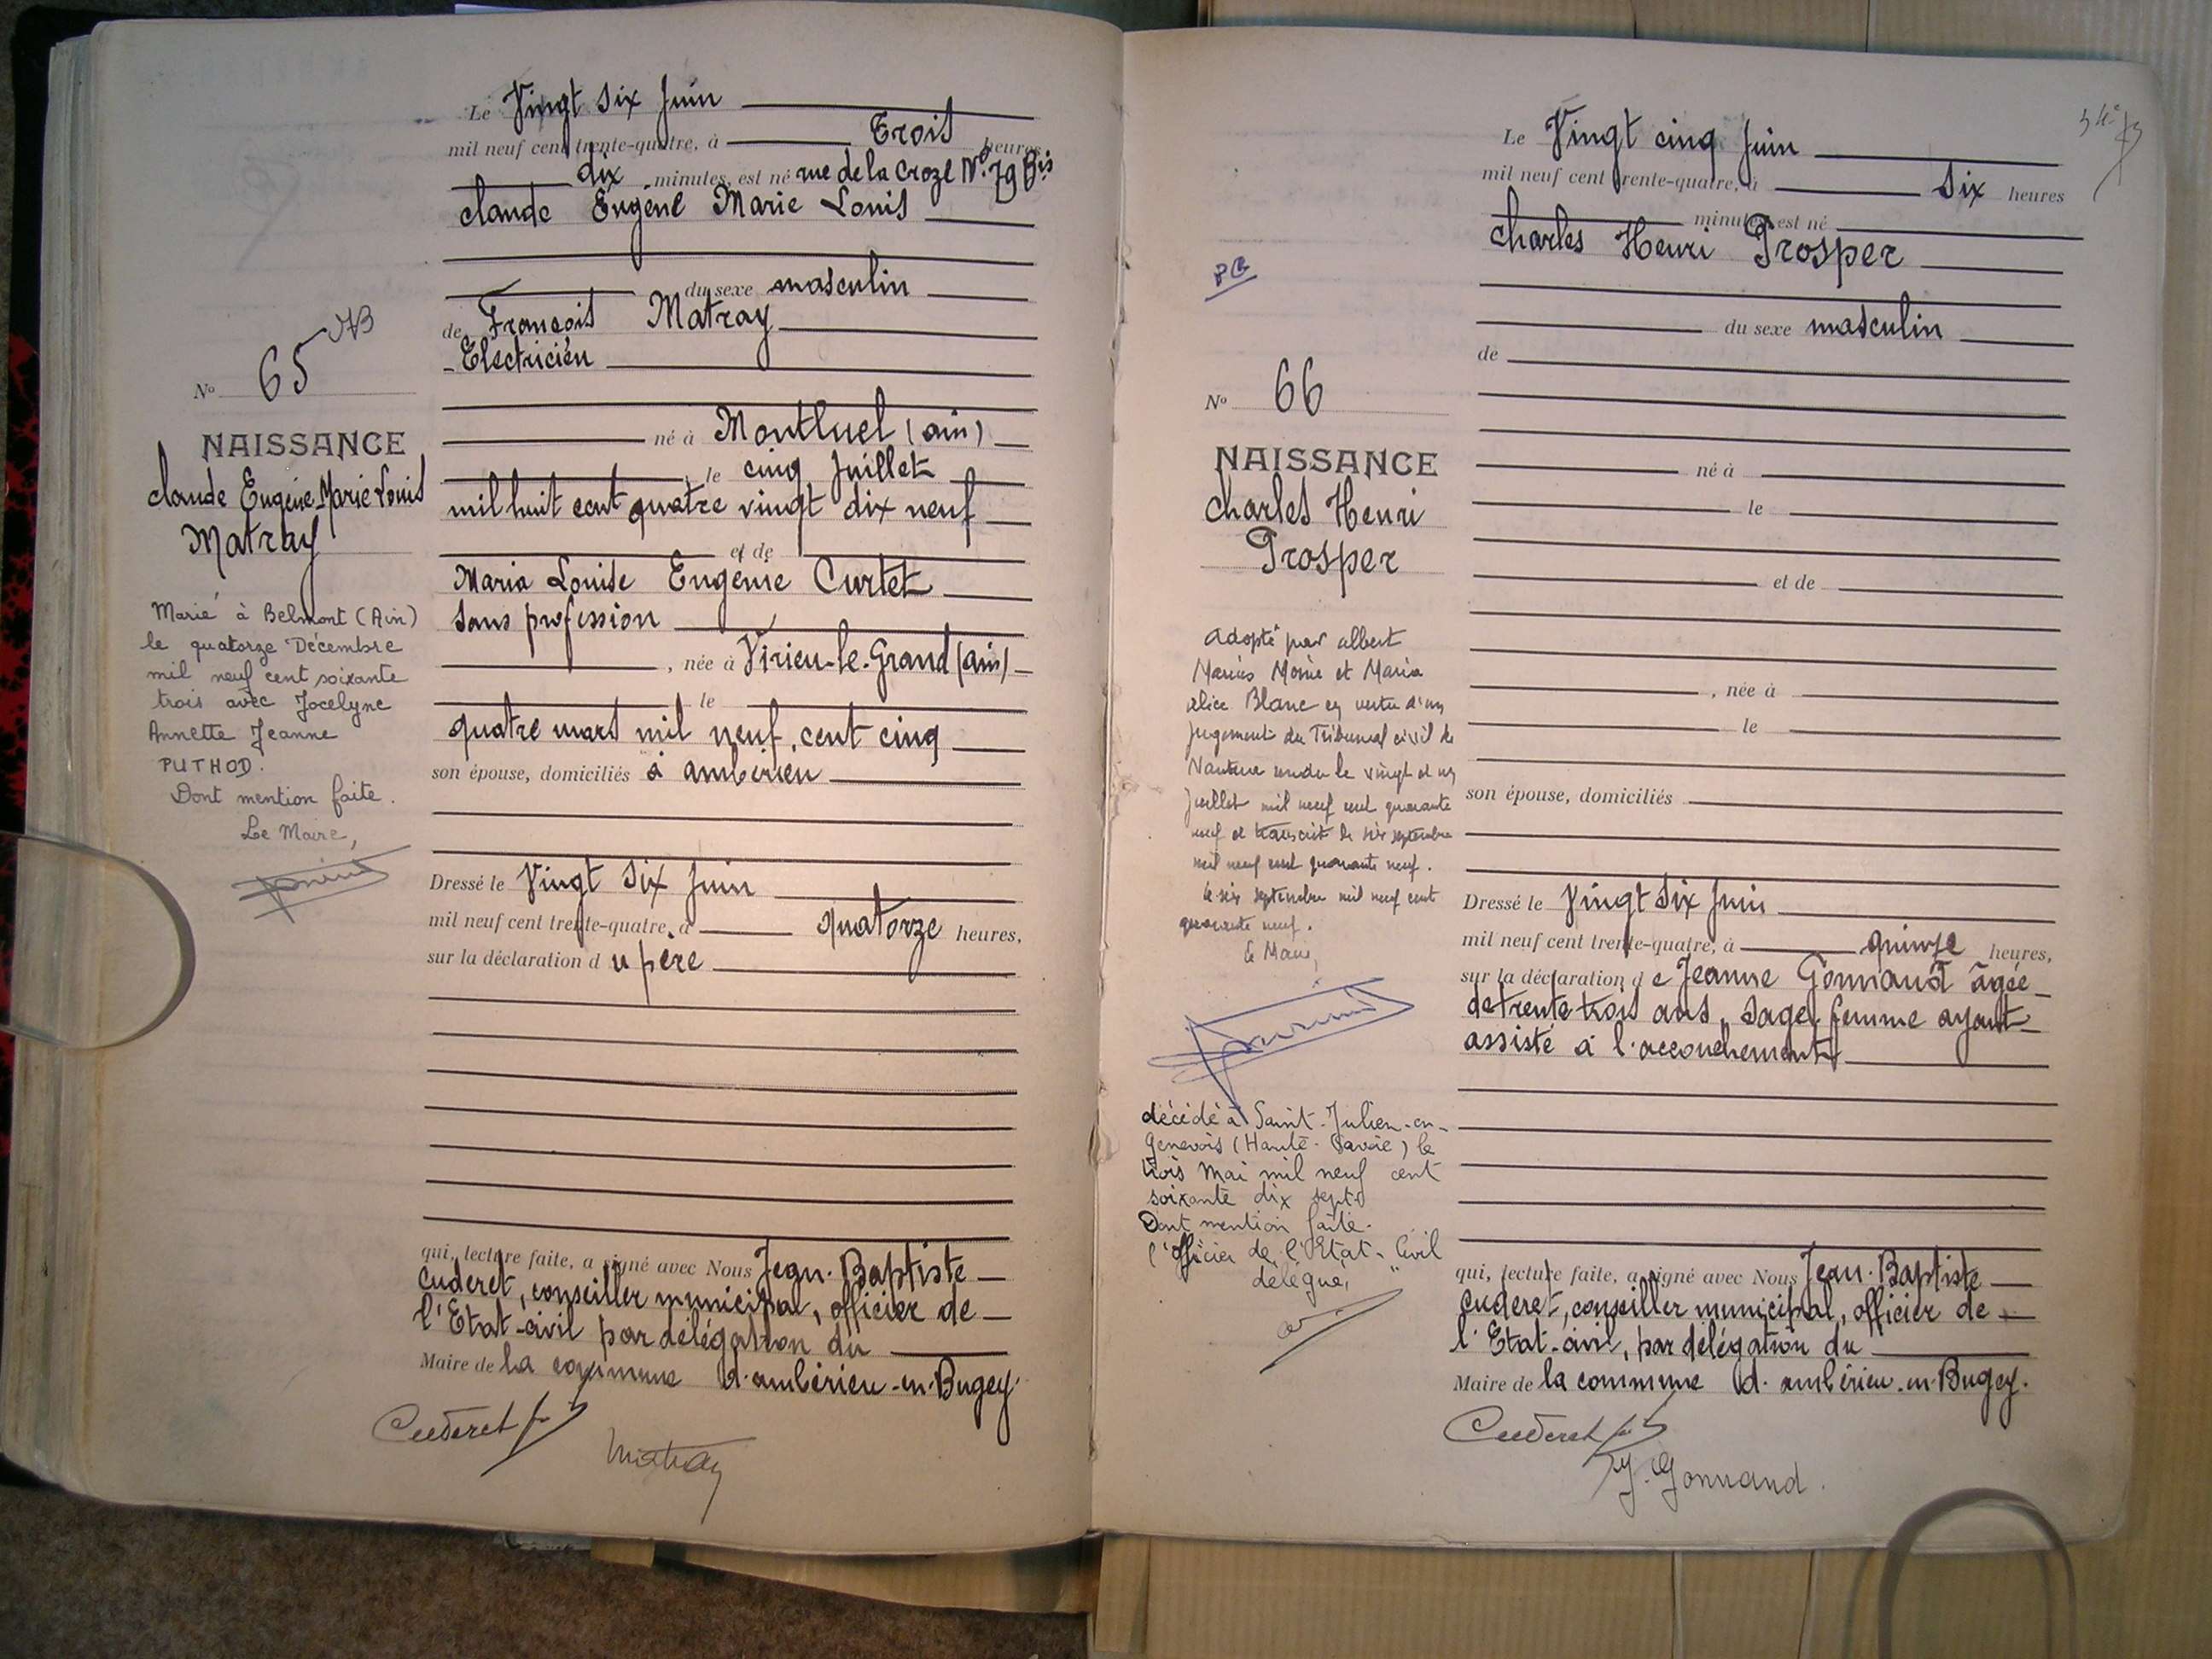 Le Vingt six Juin
mil neuf cent trente-quatre, à Trois heures
dix minutes, est né rue de la Croze N° 79 Bis
claude Eugène Marie Louis
du sexe masculin
de François Matray
Electricien
né à Montluel (ain)
le cinq Juillet
mil huit cent quatre vingt dix neuf
et de
Maria Louise Eugénie Curtet
sans profession
, née à Virieu-le-Grand (ain)
le
quatre mars mil neuf cent cinq
son épouse, domiciliés à ambérieu
Dressé le Vingt six Juin
mil neuf cent trente-quatre, à quatorze heures,
sur la déclaration du père
qui, lecture faite, a signé avec Nous Jean-Baptiste
Cuderet, conseiller municipal, officier de
l'Etat-civil par délégation du
Maire de la commune d'ambérieu-en-Bugey.
Cuderet
Matray
N° 65
NAISSANCE
claude Eugène-Marie Louis
Matray
Marié à Belmont (Ain)
le quatorze Décembre
mil neuf cent soixante
trois avec Jocelyne
Annette Jeanne
PUTHOD.
Dont mention faite.
Le Maire,
Le Vingt cinq Juin
mil neuf cent trente-quatre, à six heures
minutes, est né
Charles Henri Prosper
du sexe masculin
de
né à
le
et de
, née à
le
son épouse, domiciliés
Dressé le Vingt six Juin
mil neuf cent trente-quatre, à quinze heures,
sur la déclaration de Jeanne Gonnand âgée
de trente trois ans, sage-femme ayant
assisté à l'accouchement
qui, lecture faite, a signé avec Nous Jean-Baptiste
Cuderet, conseiller municipal, officier de
l'Etat-civil, par délégation du
Maire de la commune d'ambérieu-en-Bugey.
Cuderet
J. Gonnand.
N° 66
NAISSANCE
Charles Henri
Prosper
adopté par albert
Marius et Maria
alice Blanc en vertu d'un
jugement du Tribunal civil de
Nantua rendu le vingt et un
juillet mil neuf cent quarante
neuf et transcrit le six septembre
mil neuf cent quarante neuf.
le six septembre mil neuf cent
quarante neuf.
le Maire,
décédé à Saint-Julien-en-
Genevois (Haute-Savoie) le
trois Mai mil neuf cent
soixante dix sept.
Dont mention faite.
l'Officier de l'Etat-Civil
délégué,